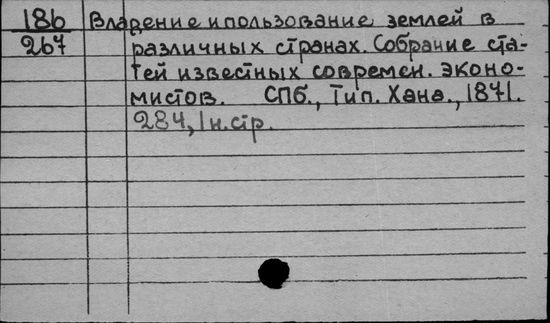 186
267
Владение и пользование землей в
различных странах. Собрание ста-
тей известных современ. эконо-
мистов. СПб., Тип. Хана., 1871.
284, 1н.стр.